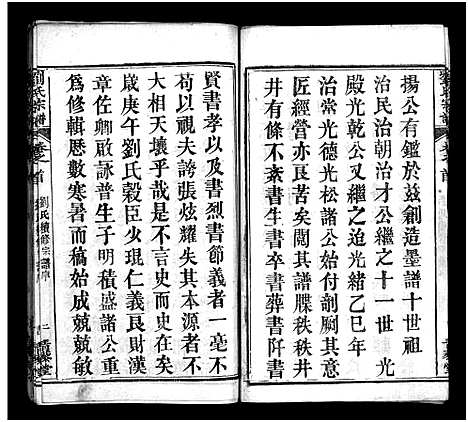 揚公有鑑於茲創造墨譜十世祖
治民治朝治才公繼之十一世光
殿光乾公又繼之迨光緒乙巳年
匠經營不恭諸公始付剞劂其意
井有條不紊書生書卒書葬書阡書
賢書孝以及書烈書節義者一毫不
苟以視夫誇張炫耀失其本源者不
大相天壤乎哉是不言史而史在矣
歲庚午劉氏穀臣火琨仁義良財漢
章佐卿啟詠普生子明積盛諸公重
為修輯歷數寒暑而稿始成兢兢敏
劉氏宗譜
卷之首
劉氏續修宗譜序
二